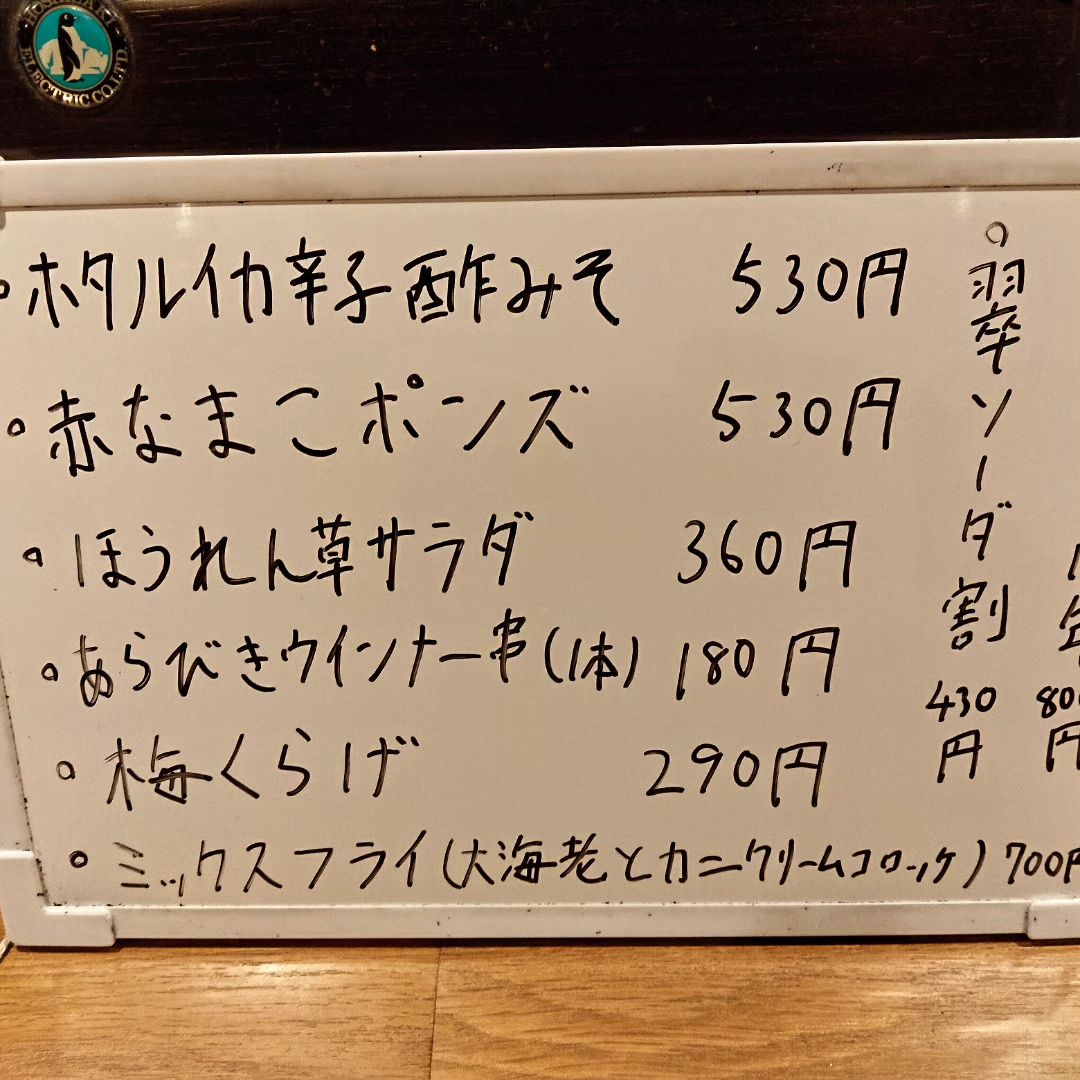 HOSHIZAKI
ELECTRIC CO.LTD
ホタルイカ辛子酢みそ 530円
赤なまこポンズ 530円
ほうれん草サラダ 360円
あらびきウインナー串(1本) 180円
梅くらげ 290円
ミックスフライ(大海老とカニクリームコロッケ) 700円
翠ソーダ割 430円
800円